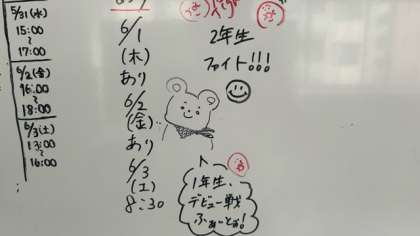 5/31(水)
15:00
~
17:00
6/2(金)
16:00
~
18:00
6/3(土)
13:00
~
16:00
6/1
(木)
あり
6/2
(金)
あり
6/3
(土)
8:30
2年生
ファイト!!!
1年生、
デビュー戦
ふぁいとぉ!